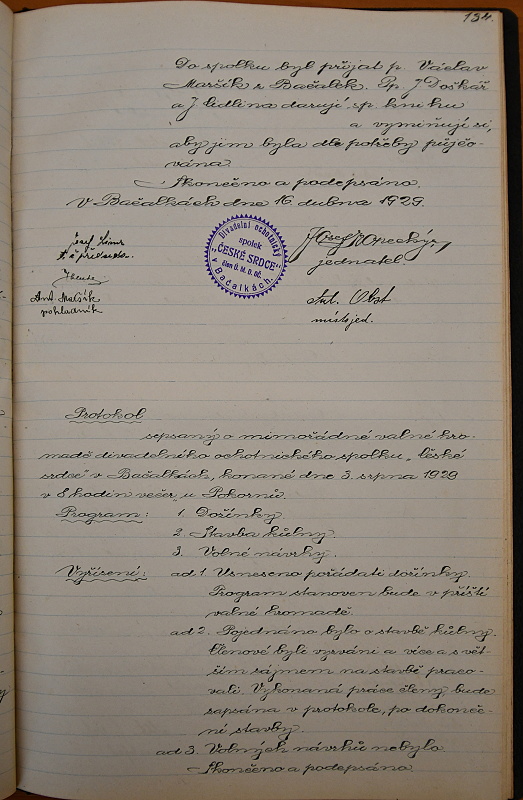 134.
Do spolku byl přijat p. Václav
Maršík z Bačalek. Pp. J Doškář
a J. Ledlina darují sp. knihu
a vyminují si,
aby jim byla dle potřeby půjčo-
vána.
Skončeno a podepsáno.
V Bačalkách dne 16 dubna 1929.
Josef
Ant. Maršík
pokladník
Divadelní ochotnický
spolek
„ČESKÉ SRDCE"
člen Ú. M. D. OČ.
v Bačalkách.
Josef Kopecký,
jednatel
Ant. Obst
místojed.
Protokol
sepsaný o mimořádné valné hro-
madě divadelního ochotnického spolku „České
srdce" v Bačalkách, konané dne 3. srpna 1929
v 8 hodin večer u Pokorníc.
Program: 1. Dožínky.
2. Stavba kůlny.
3. Volné návrhy.
Vyřízení: ad 1. Usneseno pořádati dožínky.
Program stanoven bude v příští
valné hromadě.
ad 2. Pojednáno bylo o stavbě kůlny.
Členové byli vyzváni a více a s vět-
ším zájmem na stavbě praco-
vali. Vykonaná práce členy bude
sapsána v protokole, po dokonče-
ní stavby.
ad 3. Volných návrhů nebylo
Skončeno a podepsáno.